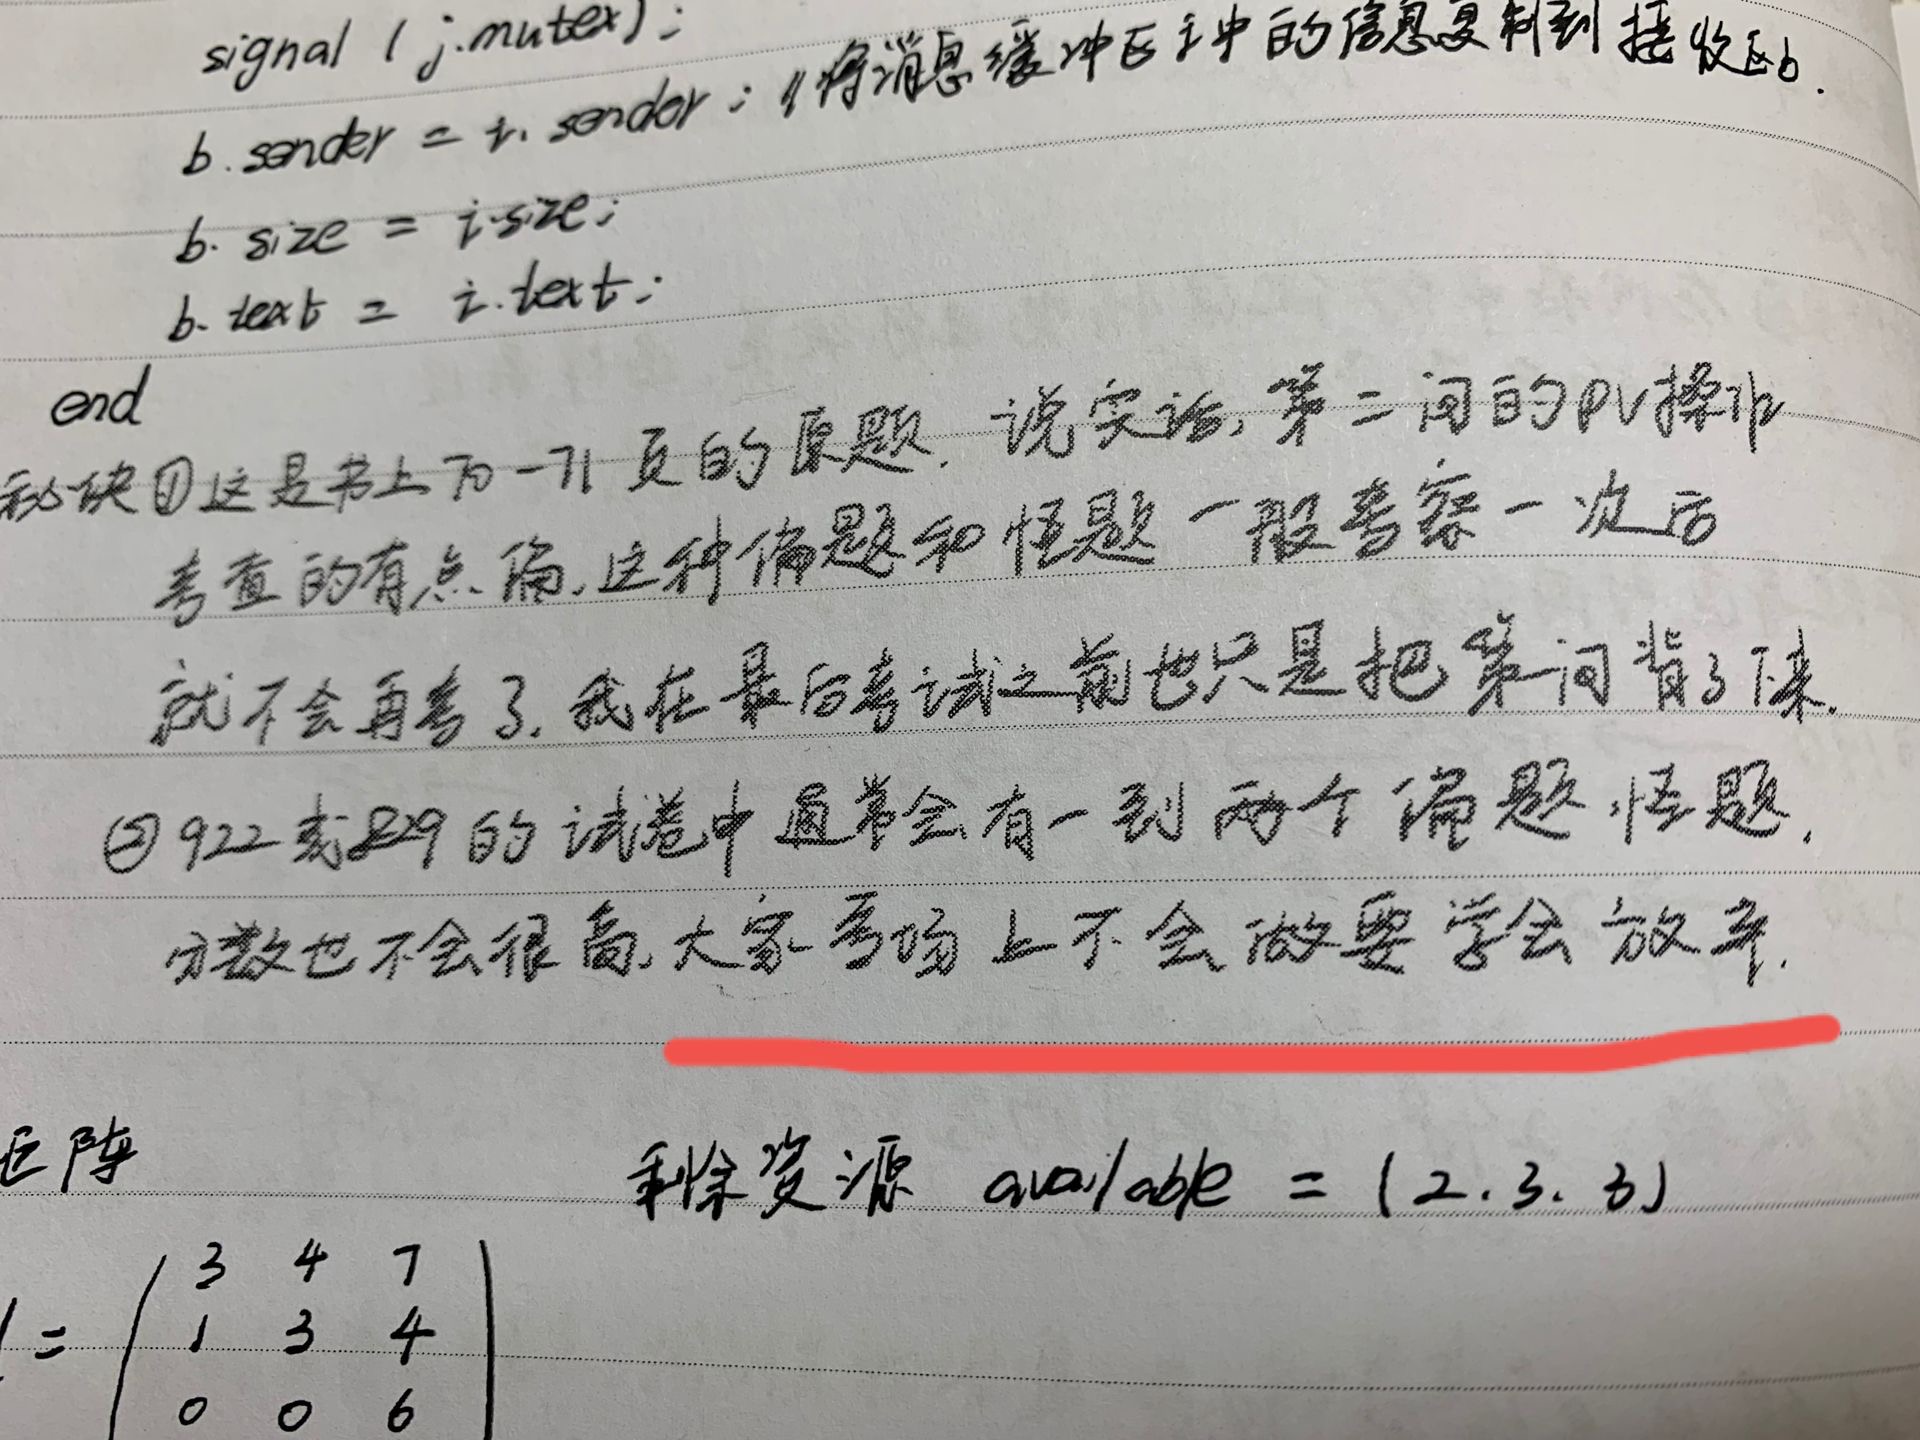 signal (j.mutex);
b.sender = i.sender; //将消息缓冲区i中的信息复制到接收区b.
b.size = i.size;
b.text = i.text;
end
秘诀①这是书上70-71页的原题.说实话,第二问的PV操作
考查的有点偏,这种偏题和怪题一般考察一次后
就不会再考了.我在最后考试之前也只是把第一问背了下来.
②922或829的试卷中通常会有一到两个偏题,怪题.
分数也不会很高,大家考场上不会做要学会放弃.
矩阵
剩余资源 available = (2.3.3)
=
3 4 7
1 3 4
0 0 6